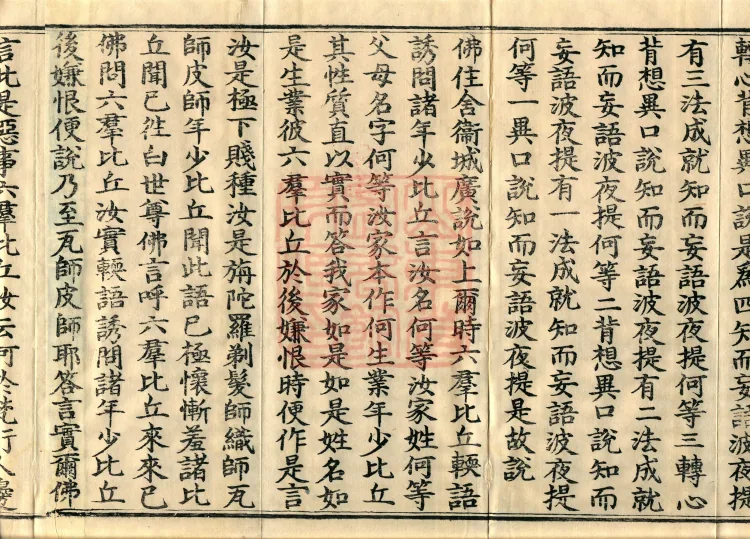 轉心背想異口說是爲四知而妄語波夜提
有三法成就知而妄語波夜提何等三轉心
背想異口說知而妄語波夜提有二法成就
知而妄語波夜提何等二背想異口說知而
妄語波夜提有一法成就知而妄語波夜提
何等一異口說知而妄語波夜提是故說
佛住舍衞城廣說如上爾時六羣比丘輭語
誘問諸年少比丘言汝名何等汝家姓何等
父母名字何等汝家本作何生業年少比丘
其性質直以實而答我家如是如是姓名如
是生業彼六羣比丘於後嫌恨時便作是言
汝是極下賤種汝是旃陀羅剃髮師織師瓦
師皮師年少比丘聞此語已極懷慚羞諸比
丘聞已往白世尊佛言呼六羣比丘來來已
佛問六羣比丘汝實輭語誘問諸年少比丘
後嫌恨便說乃至瓦師皮師耶答言實爾佛
言此是惡事六羣比丘汝云何於梵行人邊